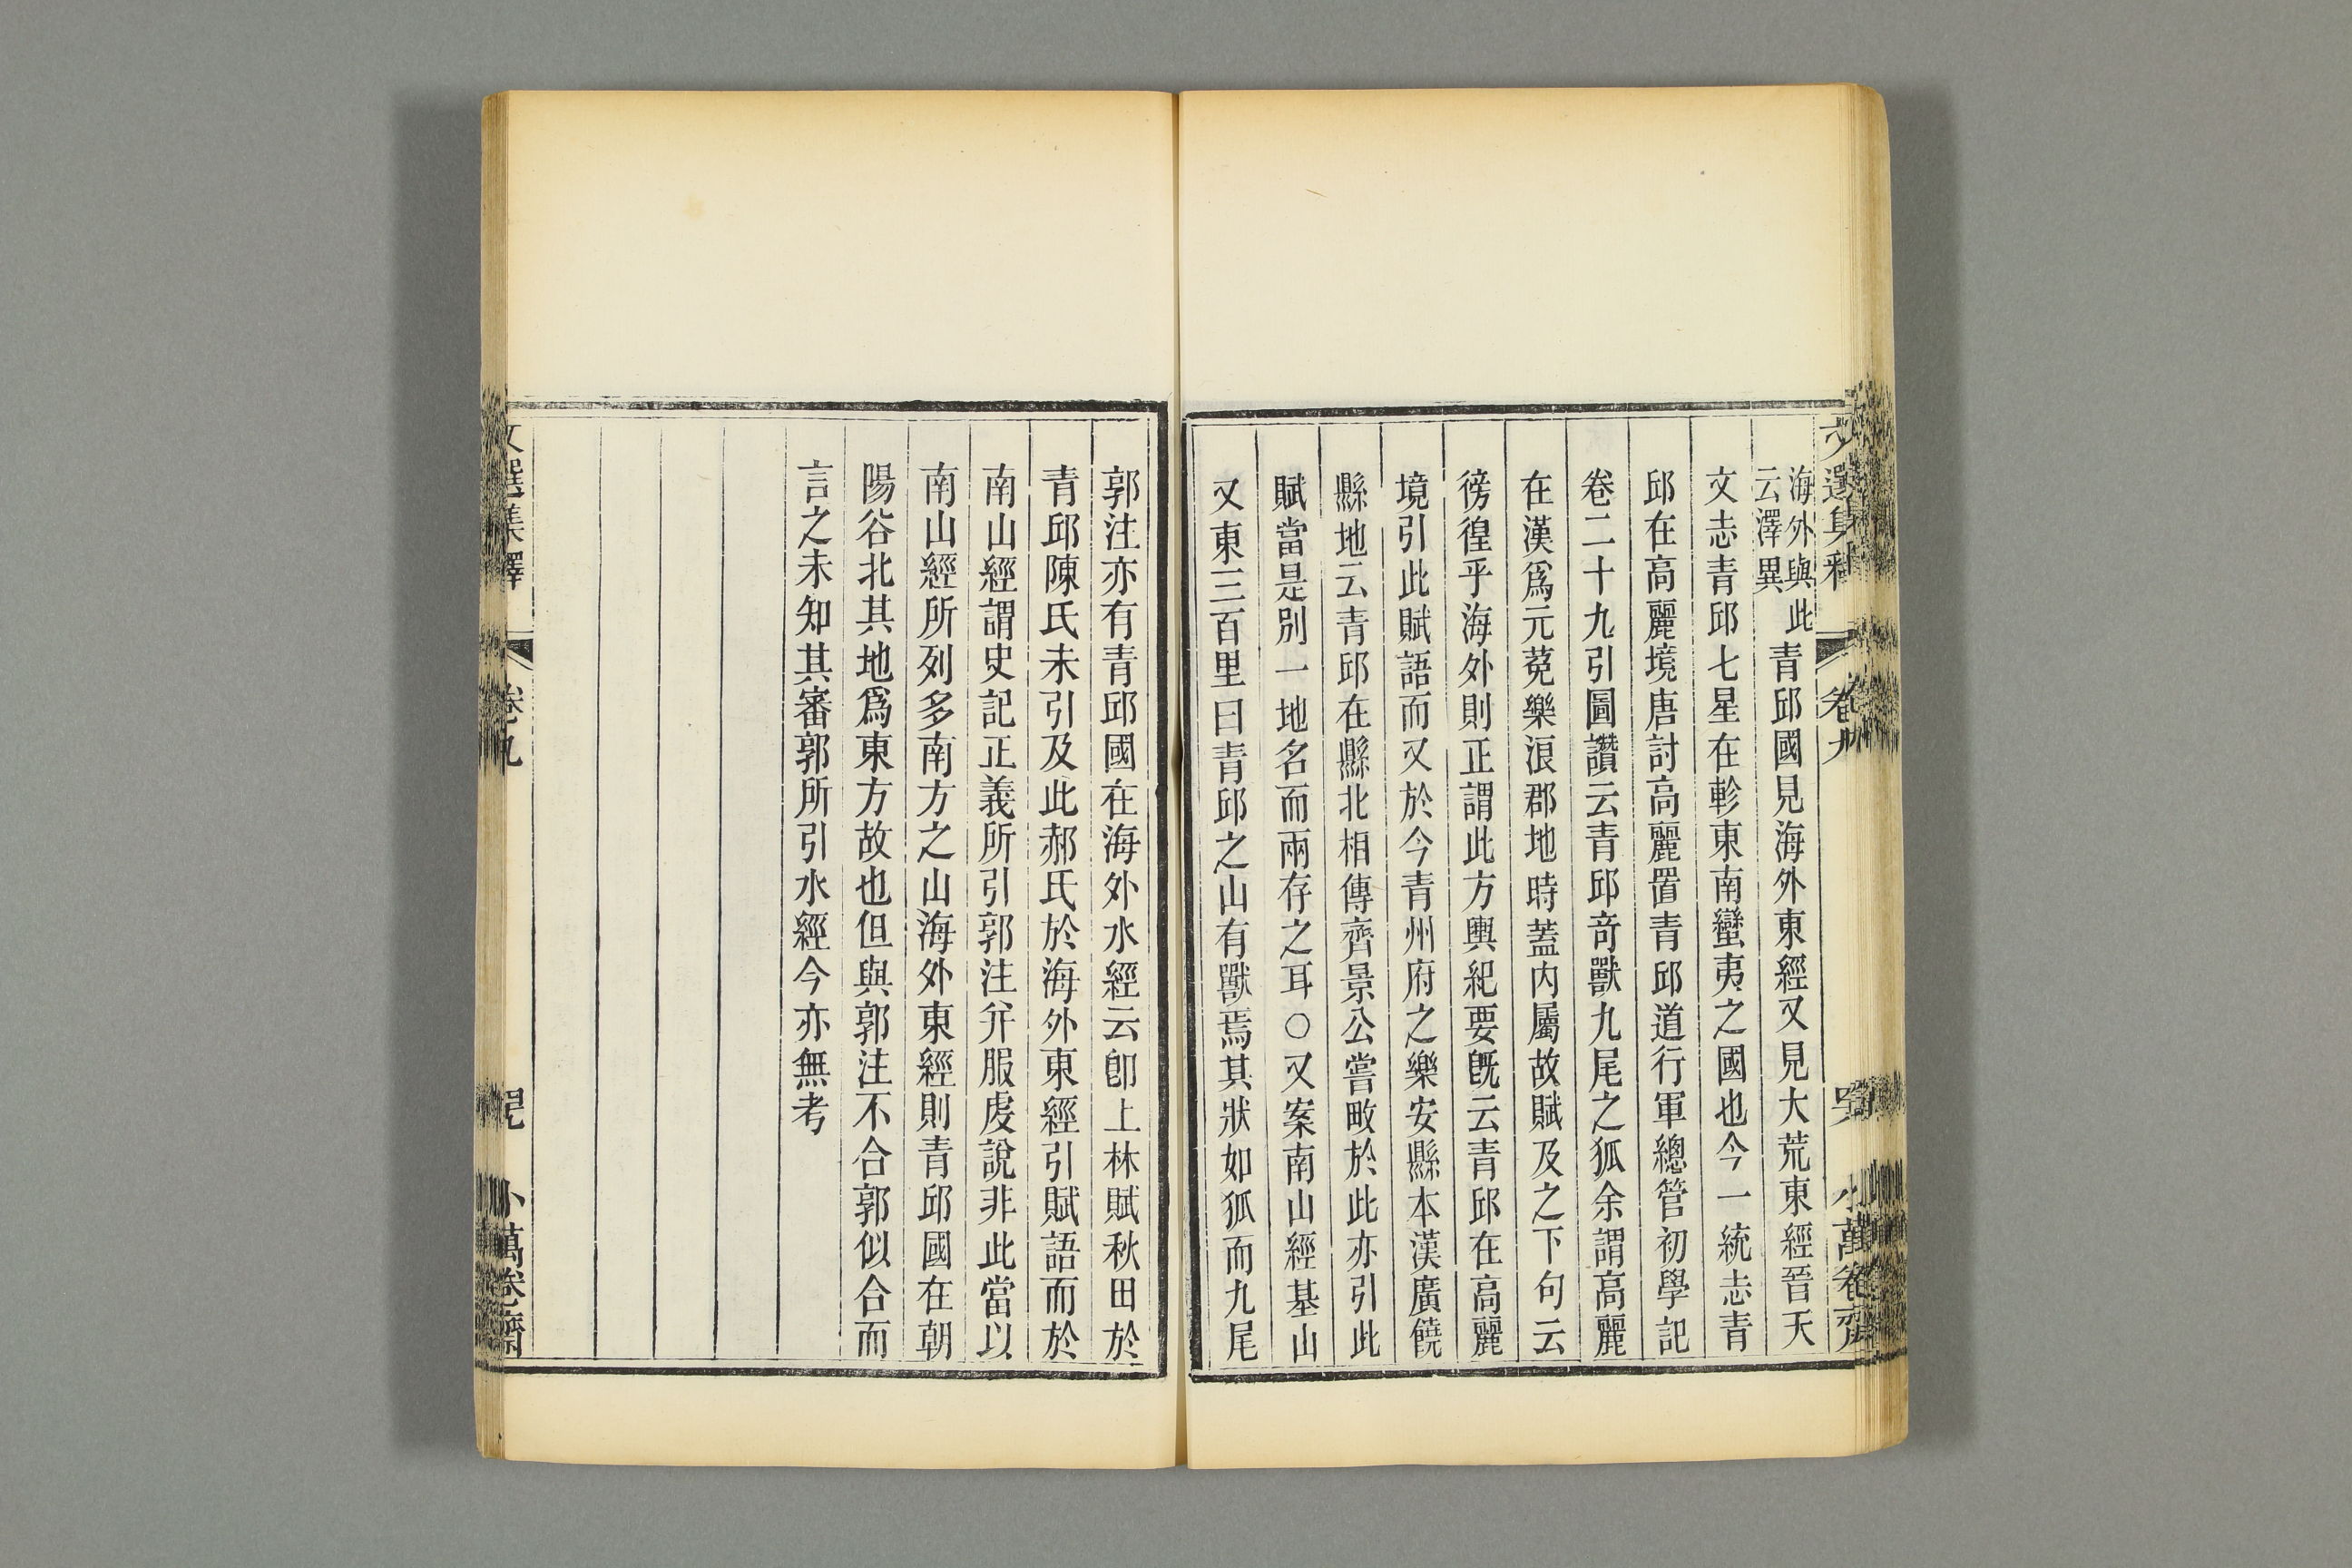 海外與此
云澤異
青邱國見海外東經又見大荒東經晉天
文志青邱七星在軫東南蠻夷之國也今一統志青
邱在高麗境唐討高麗置青邱道行軍總管初學記
卷二十九引圖讚云青邱奇獸九尾之狐余謂高麗
在漢爲元菟樂浪郡地時蓋內屬故賦及之下句云
徬徨乎海外則正謂此方輿紀要旣云青邱在高麗
境引此賦語而又於今青州府之樂安縣本漢廣饒
縣地云青邱在縣北相傳齊景公嘗畋於此亦引此
賦當是別一地名而兩存之耳○又案南山經基山
又東三百里曰青邱之山有獸焉其狀如狐而九尾
郭注亦有青邱國在海外水經云卽上林賦秋田於
青邱陳氏未引及此郝氏於海外東經引賦語而於
南山經謂史記正義所引郭注幷服虔說非此當以
南山經所列多南方之山海外東經則青邱國在朝
陽谷北其地爲東方故也但與郭注不合郭似合而
言之未知其審郭所引水經今亦無考
文選集釋
卷九
小萬卷齋